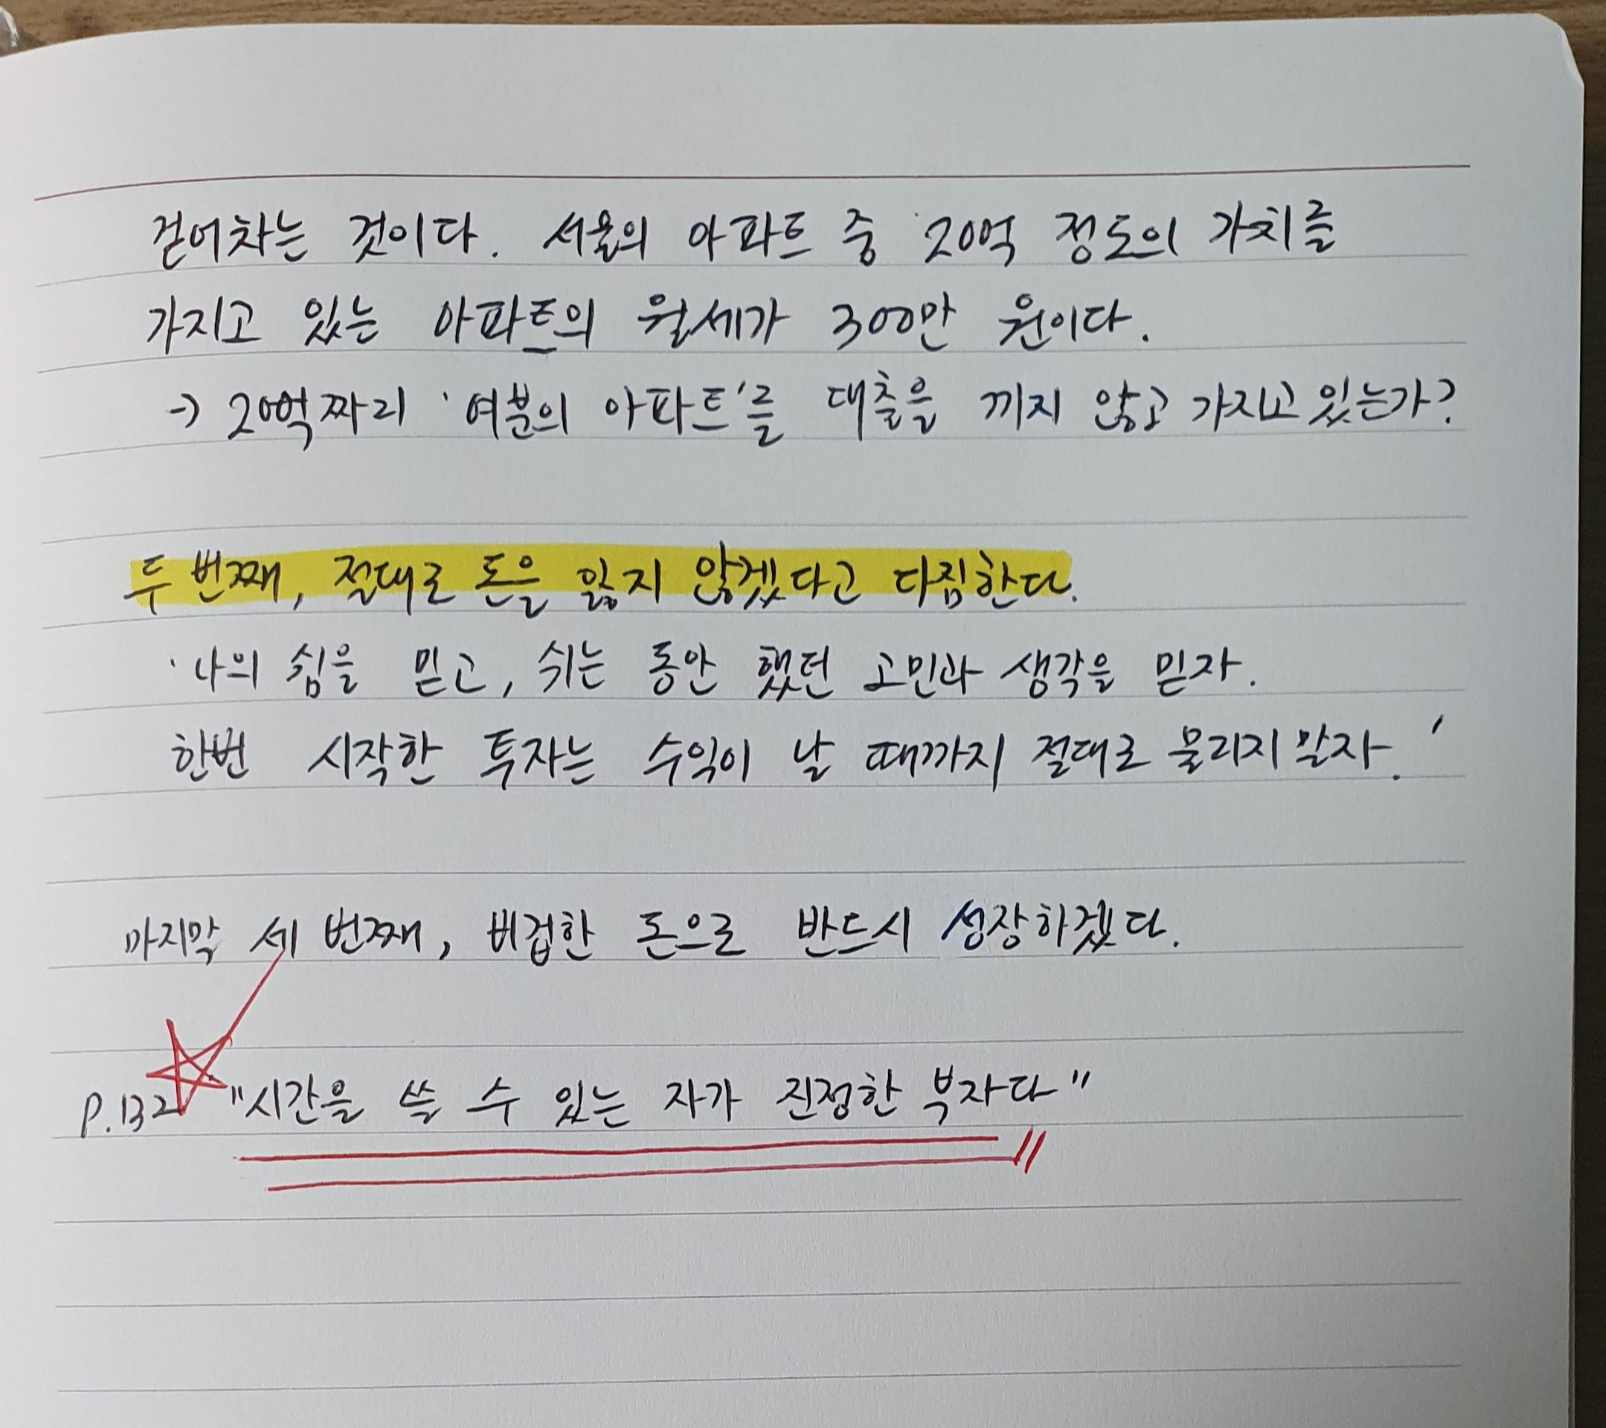 걷어차는 것이다. 서울의 아파트 중 20억 정도의 가치를
가지고 있는 아파트의 월세가 300만 원이다.
→ 20억짜리 '여분의 아파트'를 대출을 끼지 않고 가지고 있는가?
두 번째, 절대로 돈을 잃지 않겠다고 다짐한다.
'나의 쉼을 믿고, 쉬는 동안 했던 고민과 생각을 믿자.
한번 시작한 투자는 수익이 날 때까지 절대로 물리지 말자.'
마지막 세 번째, 비겁한 돈으로 반드시 성장하겠다.
P.132 "시간을 쓸 수 있는 자가 진정한 부자다"